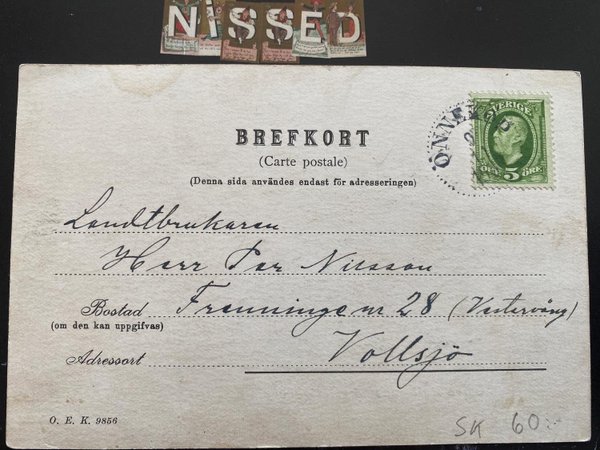 NISSED
BREFKORT
(Carte postale)
(Denna sida användes endast för adresseringen)
SVERIGE
FEM 5 ÖRE
ÖNNEKÖP
Landtbrukaren
Herr Per Nilsson
Bostad Frenninge nr 28 (Vestervång)
(om den kan uppgifvas)
Adressort Vollsjö
O. E. K. 9856
SK 60:-